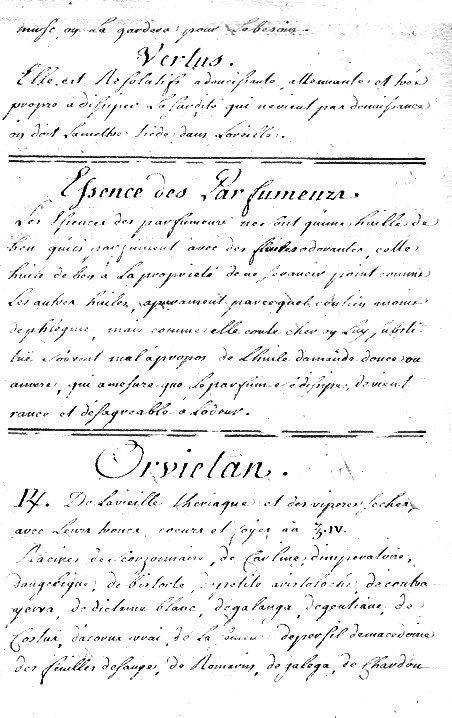 musc, on La gardera pour Le besoin.
Vertus.
Elle est Resolutive adoucissante, attenuante et très
propre a dissiper La surdité qui ne vient par denaissance
on doit La mettre tiède dans Loreille.
Essence des Parfumeurs.
Les Essences des parfumeurs ne sont qu'une huille de
ben quils parfument avec des fleurs odorantes, cette
huile de ben à La proprieté de ne se rancir point comme
Les autres huiles, aparament parcequelle contien moins
de phlegme, mais comme elle coute cher on Luy substi-
tue souvent mal àpropos de Lhuile damande douce ou
amere, qui amesure que Le parfum se dissipe, devient
rance et désagreable à Lodeur.
Orvietan.
♃. De Lavieille theriaque et des viperes seches
avec Leurs troncs coeurs et foyes aã ℥.IV.
Racines de scorzonnaire, de Carline, dimperatoire,
dangelique, de bistorte, depetite aristoloche, de contra
yerva, de dictame blanc, degalanga, degentiane, de
Costus, dacorus vrai, de La depersil demacedoine
des feuilles desauge, de Romarin, de galega, de Chardon